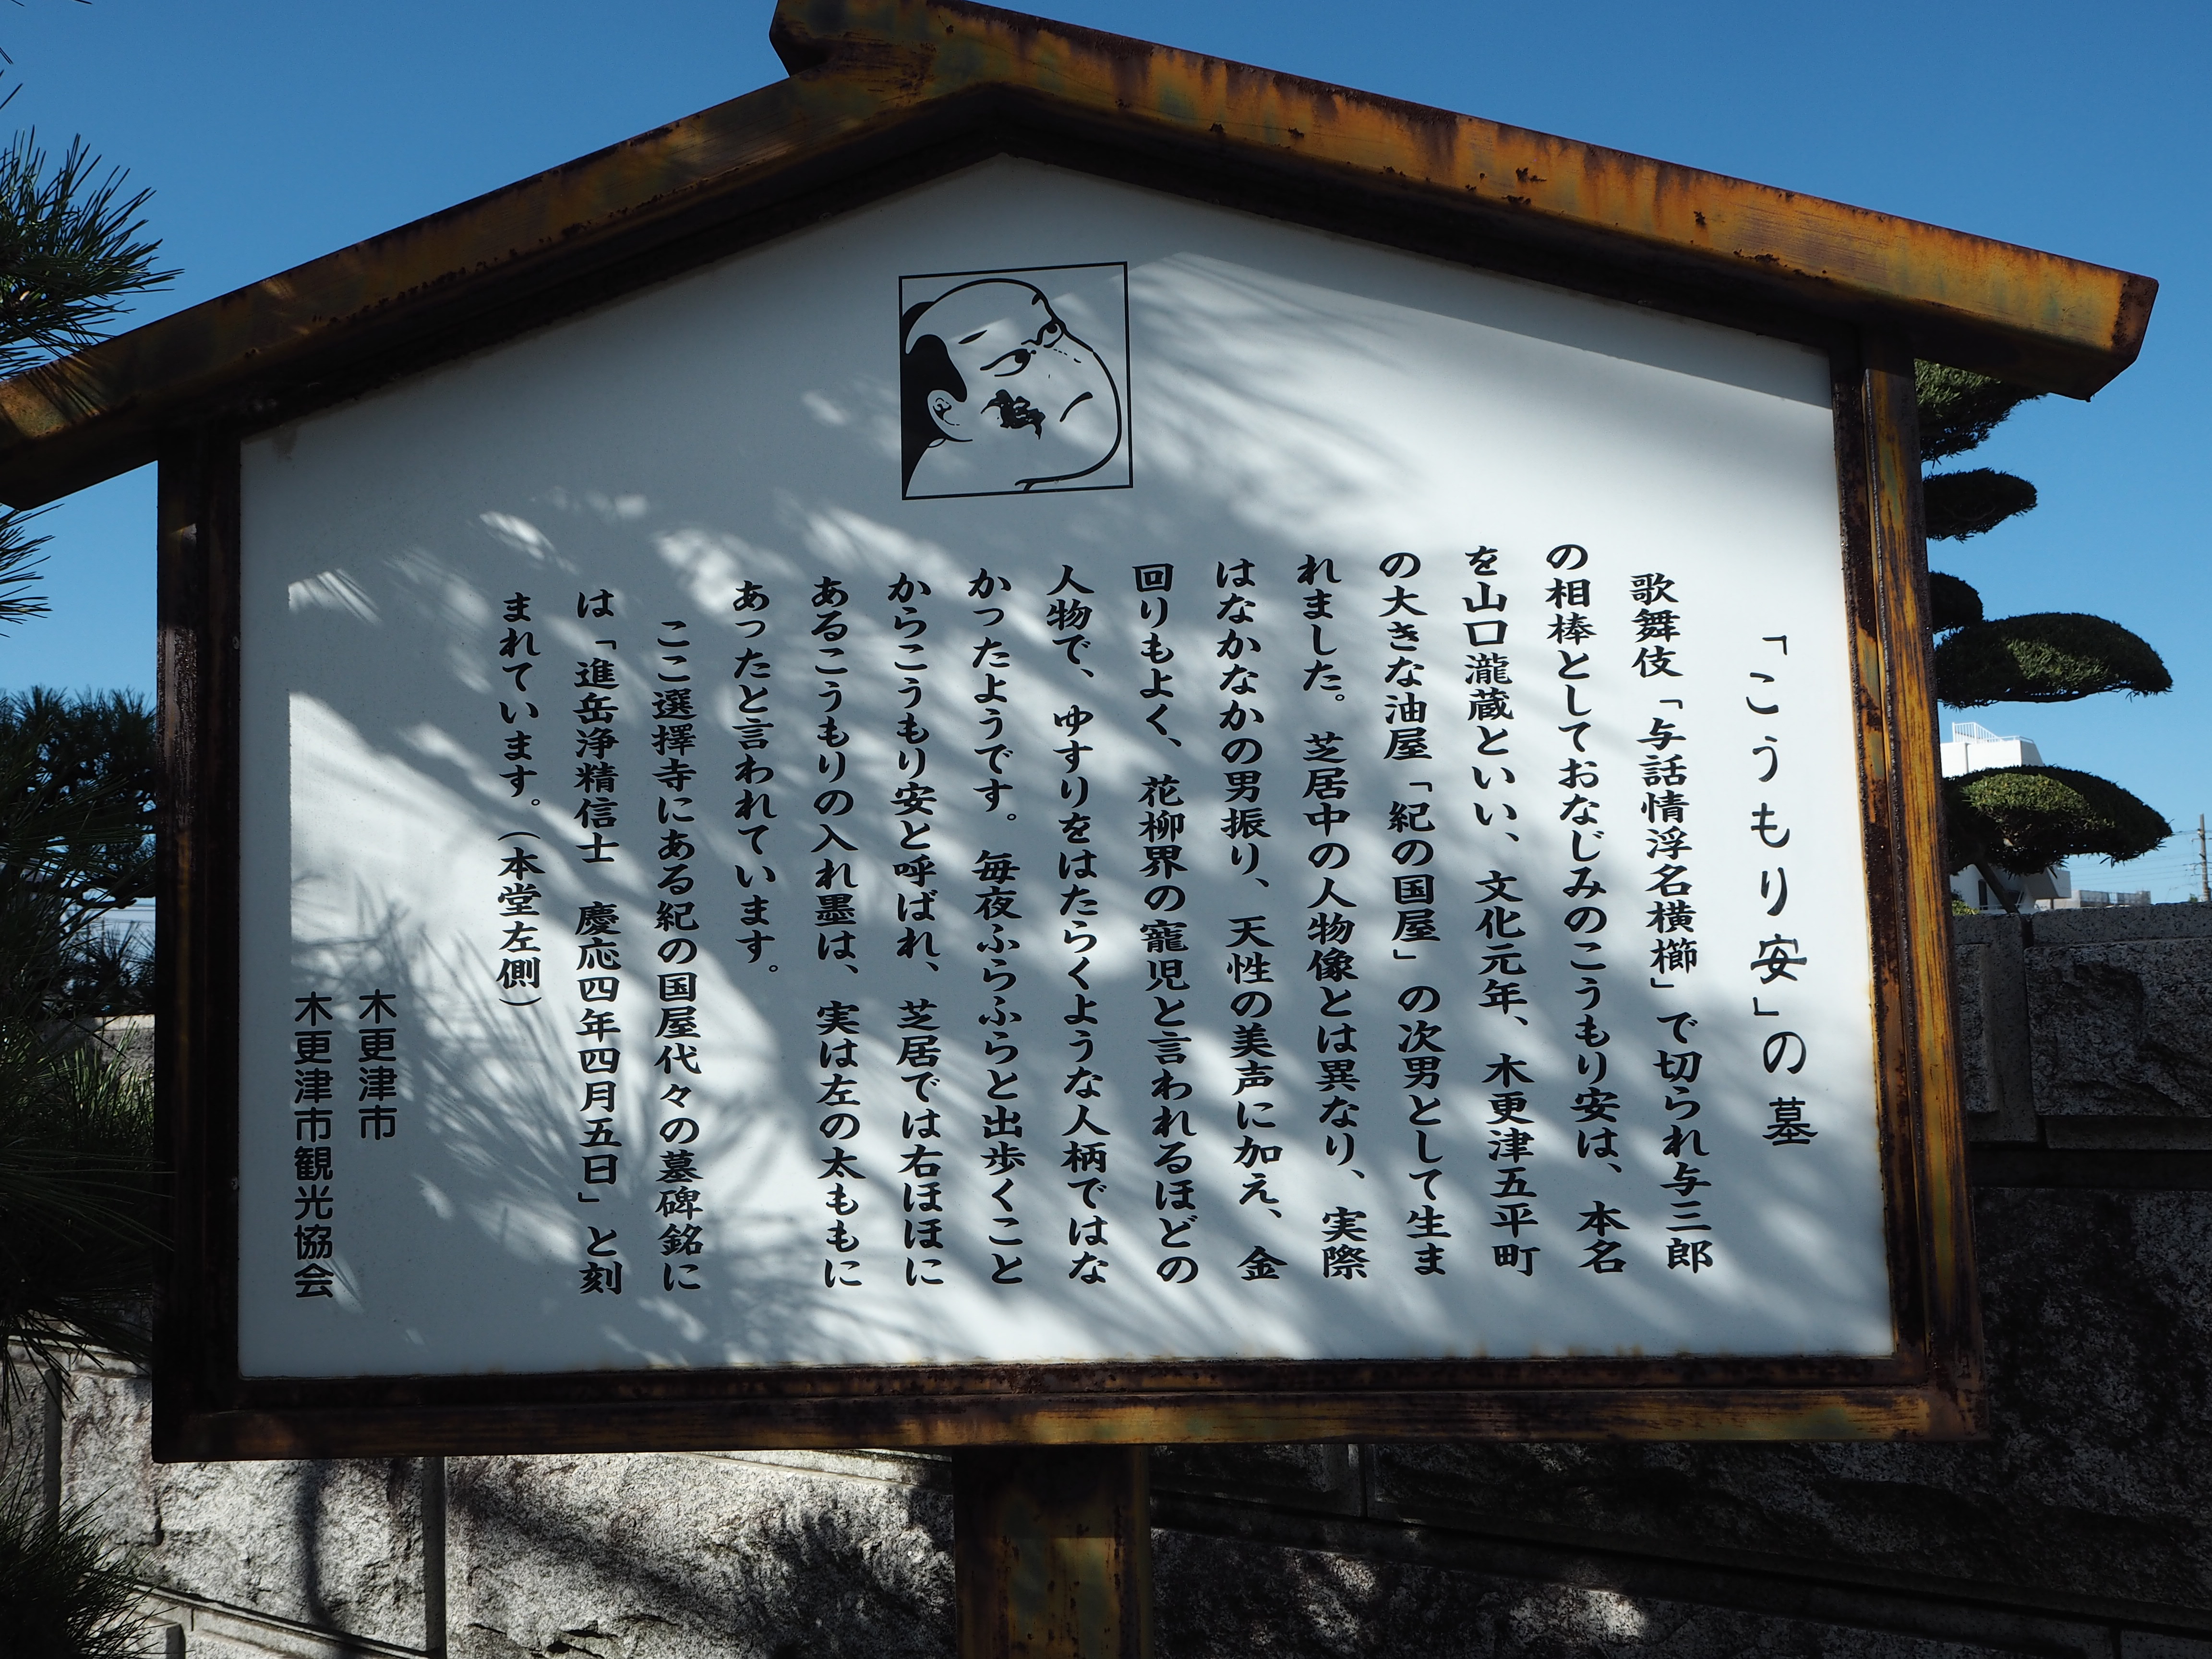 「こうもり安」の墓
歌舞伎「与話情浮名横櫛」で切られ与三郎
の相棒としておなじみのこうもり安は、本名
を山口瀧蔵といい、文化元年、木更津五平町
の大きな油屋「紀の国屋」の次男として生ま
れました。芝居中の人物像とは異なり、実際
はなかなかの男振り、天性の美声に加え、金
回りもよく、花柳界の寵児と言われるほどの
人物で、ゆすりをはたらくような人柄ではな
かったようです。毎夜ふらふらと出歩くこと
からこうもり安と呼ばれ、芝居では右ほほに
あるこうもりの入れ墨は、実は左の太ももに
あったと言われています。
ここ選擇寺にある紀の国屋代々の墓碑銘に
は「進岳浄精信士　慶応四年四月五日」と刻
まれています。（本堂左側）
木更津市
木更津市観光協会